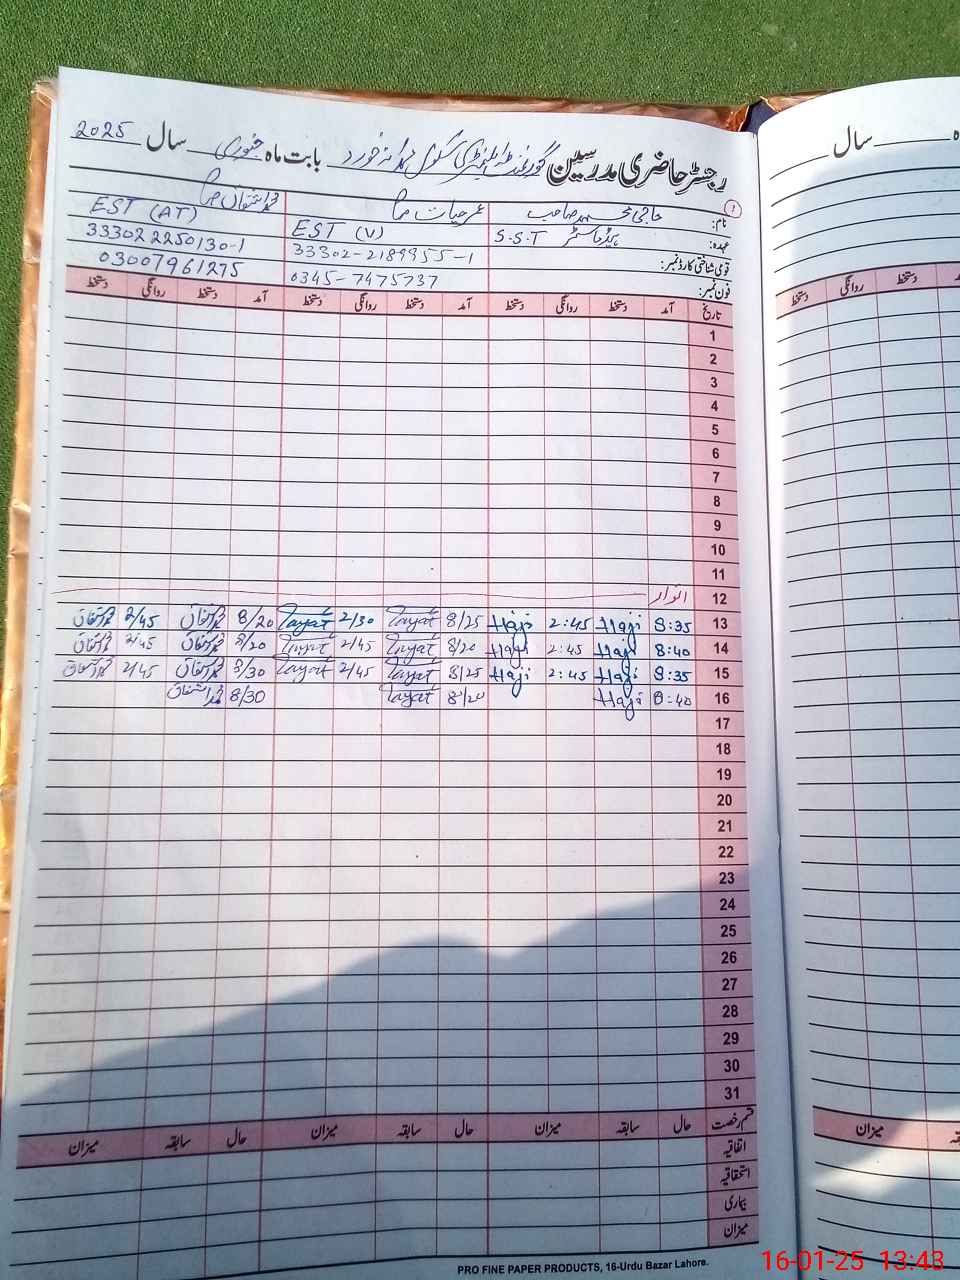 رجسٹر حاضری مدرسین گورنمنٹ ایلیمنٹری سکول خورد بابت ماہ جنوری سال 2025
نام: حاجی محمد صاحب عمر حیات
عہدہ: ہیڈ ماسٹر S.S.T EST (V) EST (AT)
قومی شناختی کارڈ نمبر: 33302-2189955-1 333022250130-1
فون نمبر: 0345-7475737 03007961275
تاریخ آمد دستخط روانگی دستخط آمد دستخط روانگی دستخط آمد دستخط روانگی دستخط
1
2
3
4
5
6
7
8
9
10
11
12 اتوار
13 8:35 Haji 2:45 Haji 8/25 Hayat 2/30 Hayat 8/20 2/45
14 8:40 Haji 2:45 Haji 8/20 Hayat 2/45 Hayat 8/20 2/45
15 8:35 Haji 2:45 Haji 8/25 Hayat 2/45 Hayat 8/30 2/45
16 8:40 Haji Hayat 8/30
17
18
19
20
21
22
23
24
25
26
27
28
29
30
31
قسم رخصت حال سابقہ میزان حال سابقہ میزان حال سابقہ میزان
اتفاقیہ
استحقاقیہ
بیماری
میزان
PRO FINE PAPER PRODUCTS, 16-Urdu Bazar Lahore.
سال
دستخط روانگی دستخط
میزان
16-01-25 13:43